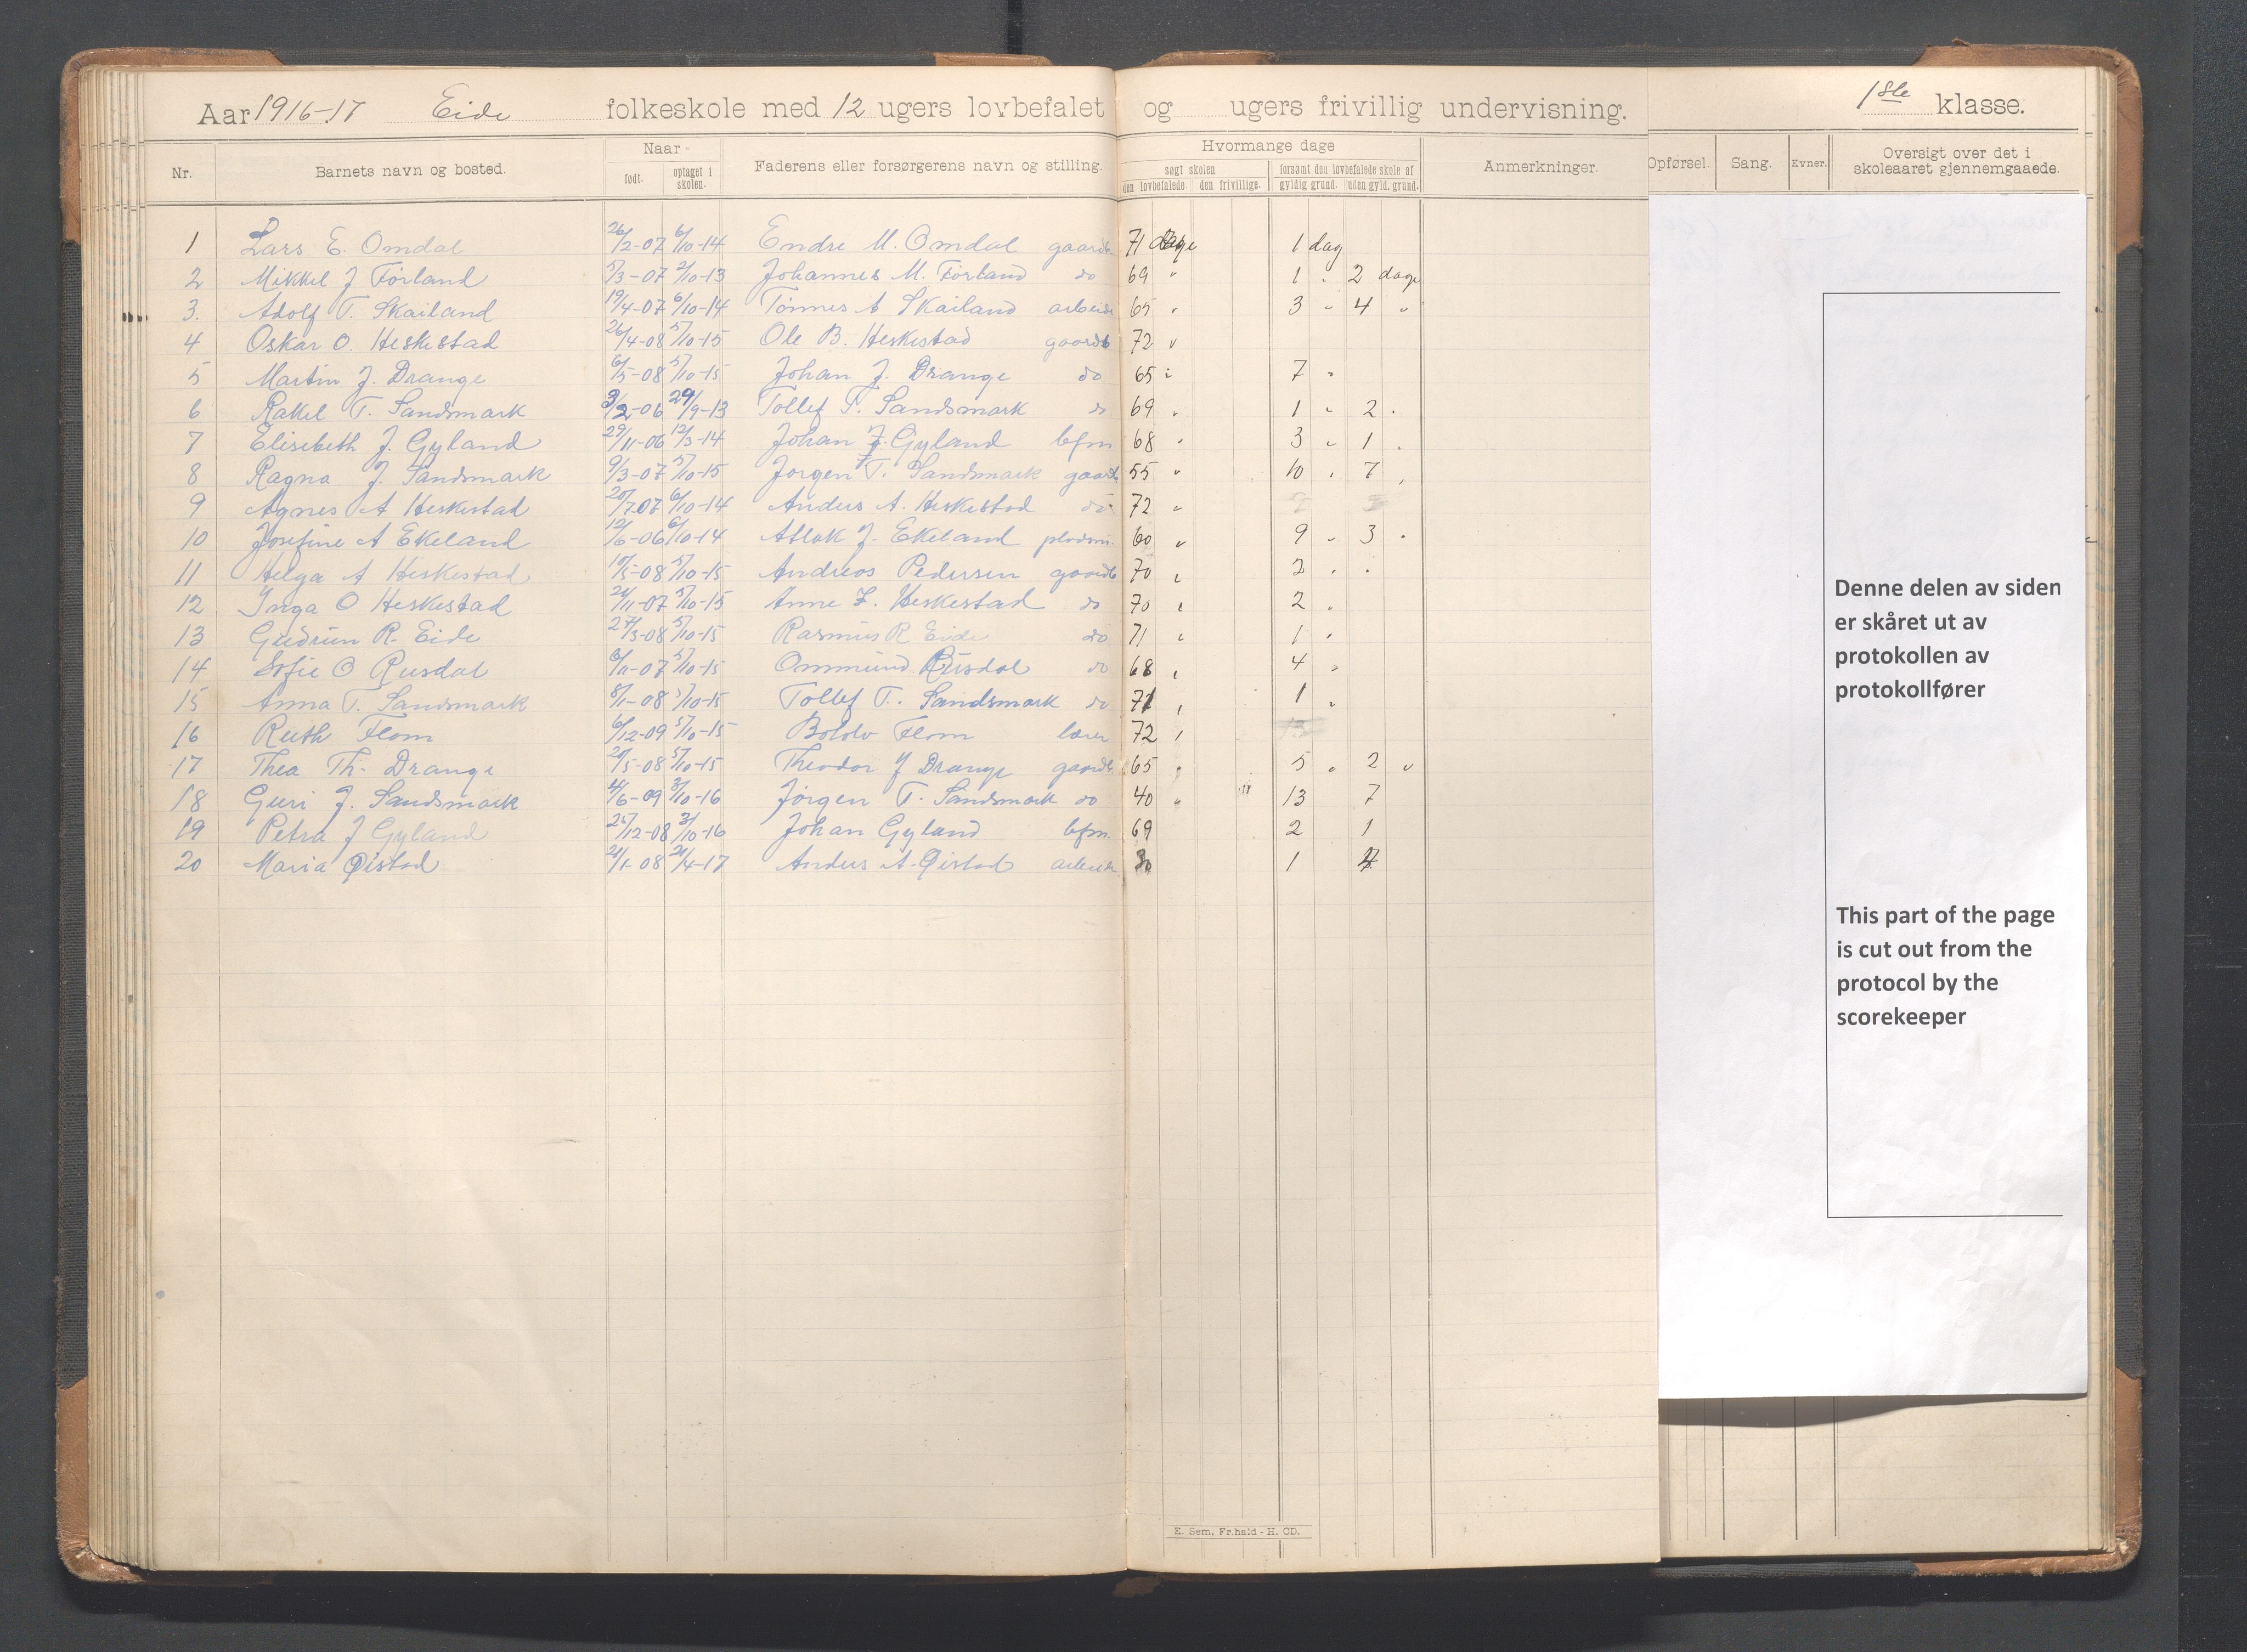 Aar 1916-17 Eide folkeskole med 12 ugers lovbefalet og ugers frivillig undervisning. 1ste klasse.
Nr. Barnets navn og bosted. Naar født. optaget i skolen. Faderens eller forsørgerens navn og stilling. Hvormange dage søgt skolen den lovbefalede. den frivillige. forsømt den lovbefalede skole af gyldig grund. uden gyld. grund. Anmerkninger. Opførsel. Sang. Evner. Oversigt over det i skoleaaret gjennemgaaede.
1 Lars E. Omdal 26/2-07 6/10-14 Endre M. Omdal gaardb 71 dage 1 dag
2 Mikkel J Førland 5/3-07 2/10-13 Johannes M. Førland do 69 " 1 " 2 dage
3. Adolf T. Skailand 19/4-07 6/10-14 Tønnes A Skailand arbeid 65 " 3 " 4 "
4 Oskar O. Heskestad 26/4-08 5/10-15 Ole B. Heskestad gaardb 72 "
5 Martin J. Drange 6/5-08 5/10-15 Johan J. Drange do 65 " 7 "
6 Rakel T. Sandsmark 3/2-06 29/9-13 Tollef T. Sandsmark do 69 " 1 " 2 "
7 Elisebeth J. Gyland 29/11-06 12/3-14 Johan J. Gyland bfm 68 " 3 " 1 "
8 Ragna J. Sandsmark 9/3-07 5/10-15 Jørgen T. Sandsmark gaardb 55 " 10 " 7 "
9 Agnes A Heskestad 20/7-07 6/10-14 Anders A. Heskestad do 72 "
10 Josefine A Ekeland 12/6-06 6/10-14 Atlak J. Ekeland pladsm. 60 " 9 " 3 "
11 Helga A Heskestad 10/5-08 5/10-15 Andreas Pedersen gaardb 70 " 2 " "
12 Inga O Heskestad 21/11-07 5/10-15 Anne Z. Heskestad do 70 " 2 "
13 Gudrun R. Eide 27/3-08 5/10-15 Rasmus R Eide do 71 " 1 "
14 Sofie O Rusdal 6/11-07 5/10-15 Ommund Rusdal do 68 " 4 "
15 Anna T. Sandsmark 8/1-08 5/10-15 Tollef T. Sandsmark do 71 " 1 "
16 Ruth Flom 6/12-09 5/10-15 Flom lærer 72 "
17 Thea Th. Drange 20/5-08 5/10-15 Theodor J Drange gaardb 65 " 5 " 2 "
18 Guri J. Sandsmark 4/6-09 3/10-16 Jørgen T. Sandsmark do 40 " 13 7
19 Petra J Gyland 25/12-08 3/10-16 Johan Gyland bfm. 69 2 1
20 Maria Øistad 21/1-08 21/4-17 Anders A. Øistad arbeid 30 1
E. Sem, Fr.hald - H. CD.
Denne delen av siden
er skåret ut av
protokollen av
protokollfører
This part of the page
is cut out from the
protocol by the
scorekeeper